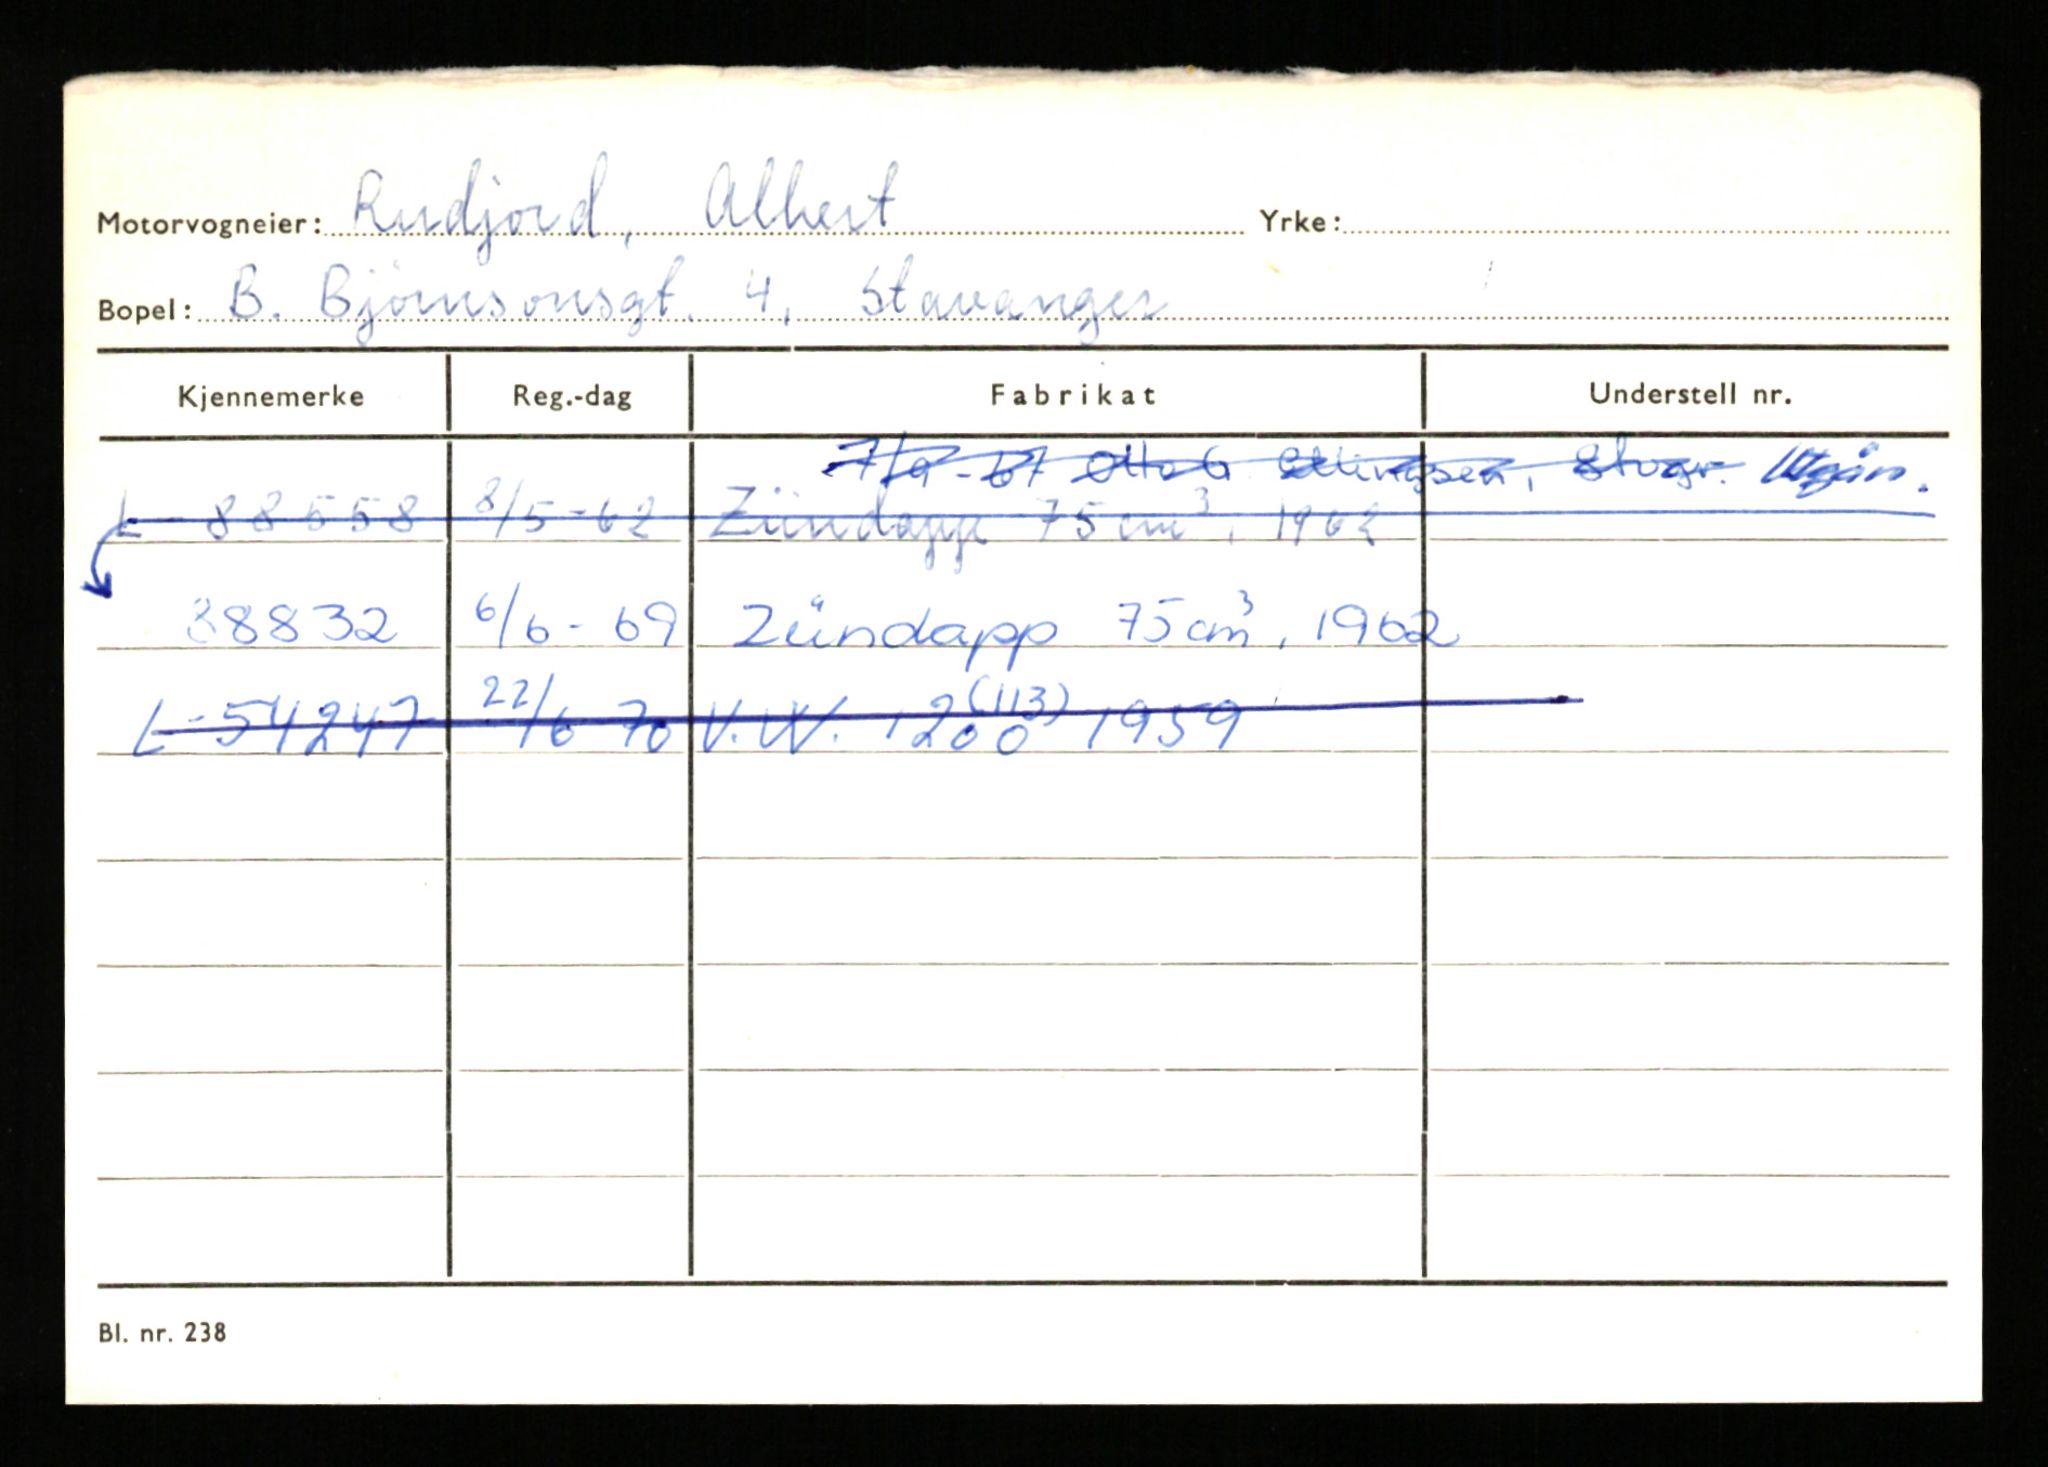 Motorvogneier: Rudjord, Albert Yrke:
Bopel: B. Bjørnsonsgt. 4, Stavanger
Kjennemerke Reg.-dag Fabrikat Understell nr.
7/9-67 Otto G. Ellingsen, Stvgr. Utgår.
L-88558 8/5-62 Zündapp 75 cm³, 1962
88832 6/6-69 Zündapp 75 cm³, 1962
L-54247 22/6 70 V.W. 1200 (113) 1959
Bl. nr. 238